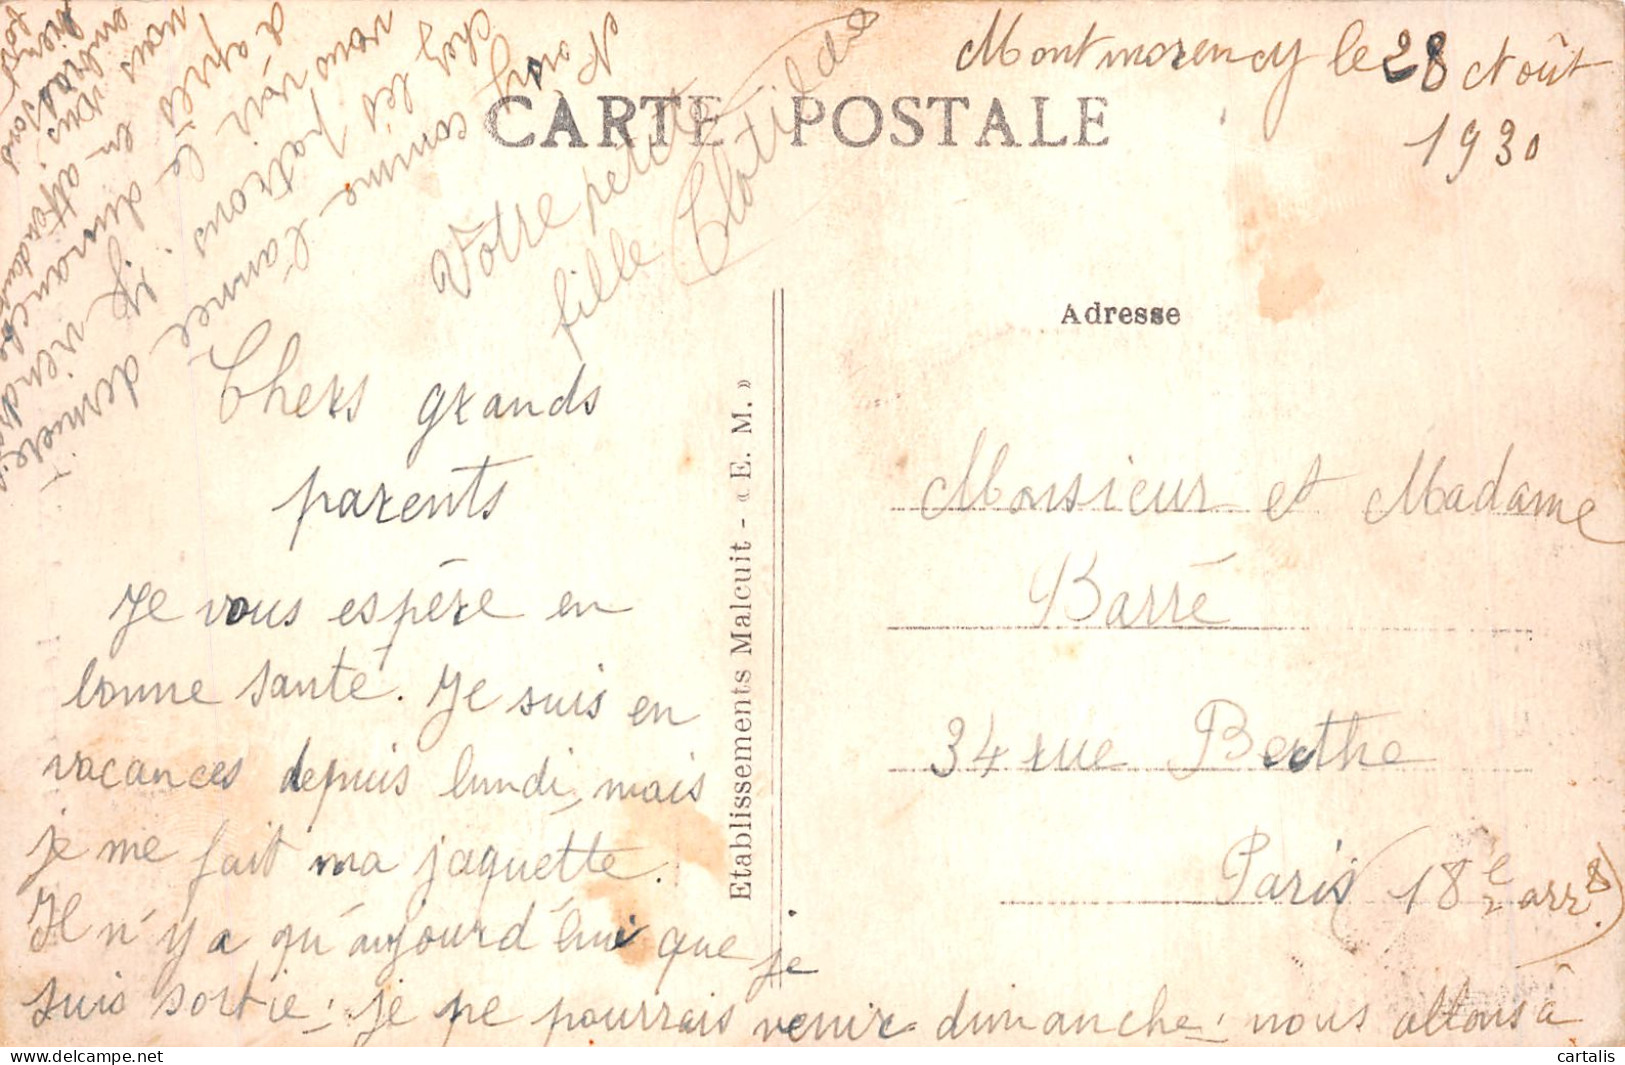 Montmorency le 28 Août
1930
CARTE POSTALE
Chers grands
parents
Je vous espère en
bonne santé. Je suis en
vacances depuis lundi, mais
je me fait ma jaquette.
Il n'y a qu'aujourd'hui que je
suis sortie; je ne pourrais venir dimanche; nous allons à
Poncy comme l'année dernière
chez les patrons; je viendrai
vous voir le dimanche
d'après
nous en attendant
vous
Votre petite
fille Clotilde
Etablissements Malcuit - « E. M. »
Adresse
Monsieur et Madame
Barré
34 rue Berthe
Paris (18e arr.)
cartalis